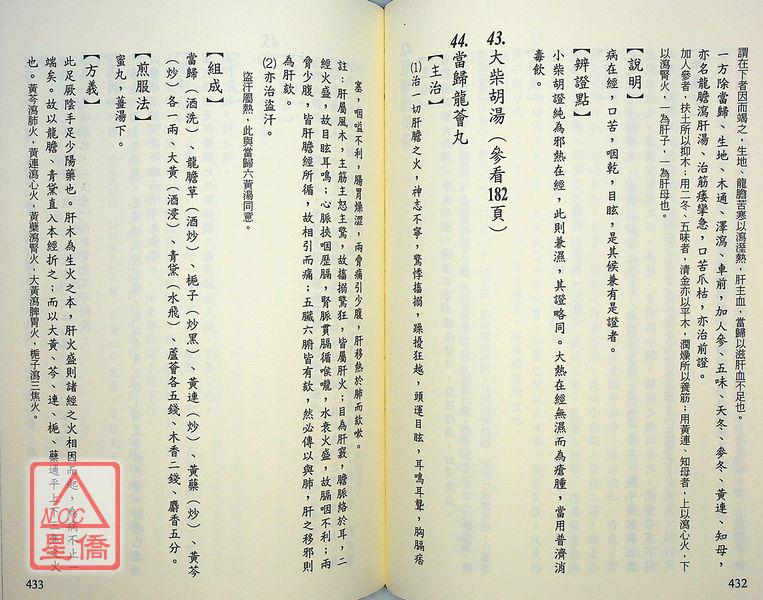 謂在下者因而竭之，生地、龍膽苦寒以瀉溼熱，肝主血，當歸以滋肝血不足也。
一方除當歸、生地、木通、澤瀉、車前，加人參、五味、天冬、麥冬、黃連、知母，
亦名龍膽瀉肝湯、治筋痿攣急，口苦爪枯，亦治前證。
加人參者，扶土所以抑木；用二冬、五味者，清金亦以平木，潤燥所以養筋；用黃連、知母者，上以瀉心火，下
以瀉腎火，一為肝子，一為肝母也。
【說明】
病在經，口苦，咽乾，目眩，是其候兼有是證者。
【辨證點】
小柴胡證純為邪熱在經，此則兼濕，其證略同。大熱在經無濕而為瘡腫，當用普濟消
毒飲。
43.大柴胡湯（參看182頁）
44.當歸龍薈丸
【主治】
⑴治一切肝膽之火，神志不寧，驚悸搐搦，躁擾狂越，頭運目眩，耳鳴耳聾，胸膈痞
塞，咽嗌不利，腸胃燥澀，兩脅痛引少腹，肝移熱於肺而欬嗽。
註：肝屬風木，主筋主怒主驚，故搐搦驚狂，皆屬肝火；目為肝竅，膽脈絡於耳，二
經火盛，故目眩耳鳴；心脈挾咽歷膈，腎脈貫膈循喉嚨，水衰火盛，故膈咽不利；兩
脅少腹，皆肝膽經所循，故相引而痛；五臟六腑皆有欬，然必傳以與肺，肝之移邪則
為肝欬。
⑵亦治盜汗。
盜汗屬熱，此與當歸六黃湯同意。
【組成】
當歸（酒洗）、龍膽草（酒炒）、梔子（炒黑）、黃連（炒）、黃蘗（炒）、黃芩
（炒）各一兩、大黃（酒浸）、青黛（水飛）、蘆薈各五錢、木香二錢、麝香五分。
【煎服法】
蜜丸，薑湯下。
【方義】
此足厥陰手足少陽藥也。肝木為生火之本，肝火盛則諸經之火相因而起，為病不止一
端矣。故以龍膽、青黛直入本經折之；而以大黃、芩、連、梔、蘗通平上下三焦之火
也。黃芩瀉肺火，黃連瀉心火，黃蘗瀉腎火，大黃瀉脾胃火，梔子瀉三焦火。
432
433
NCC
星僑